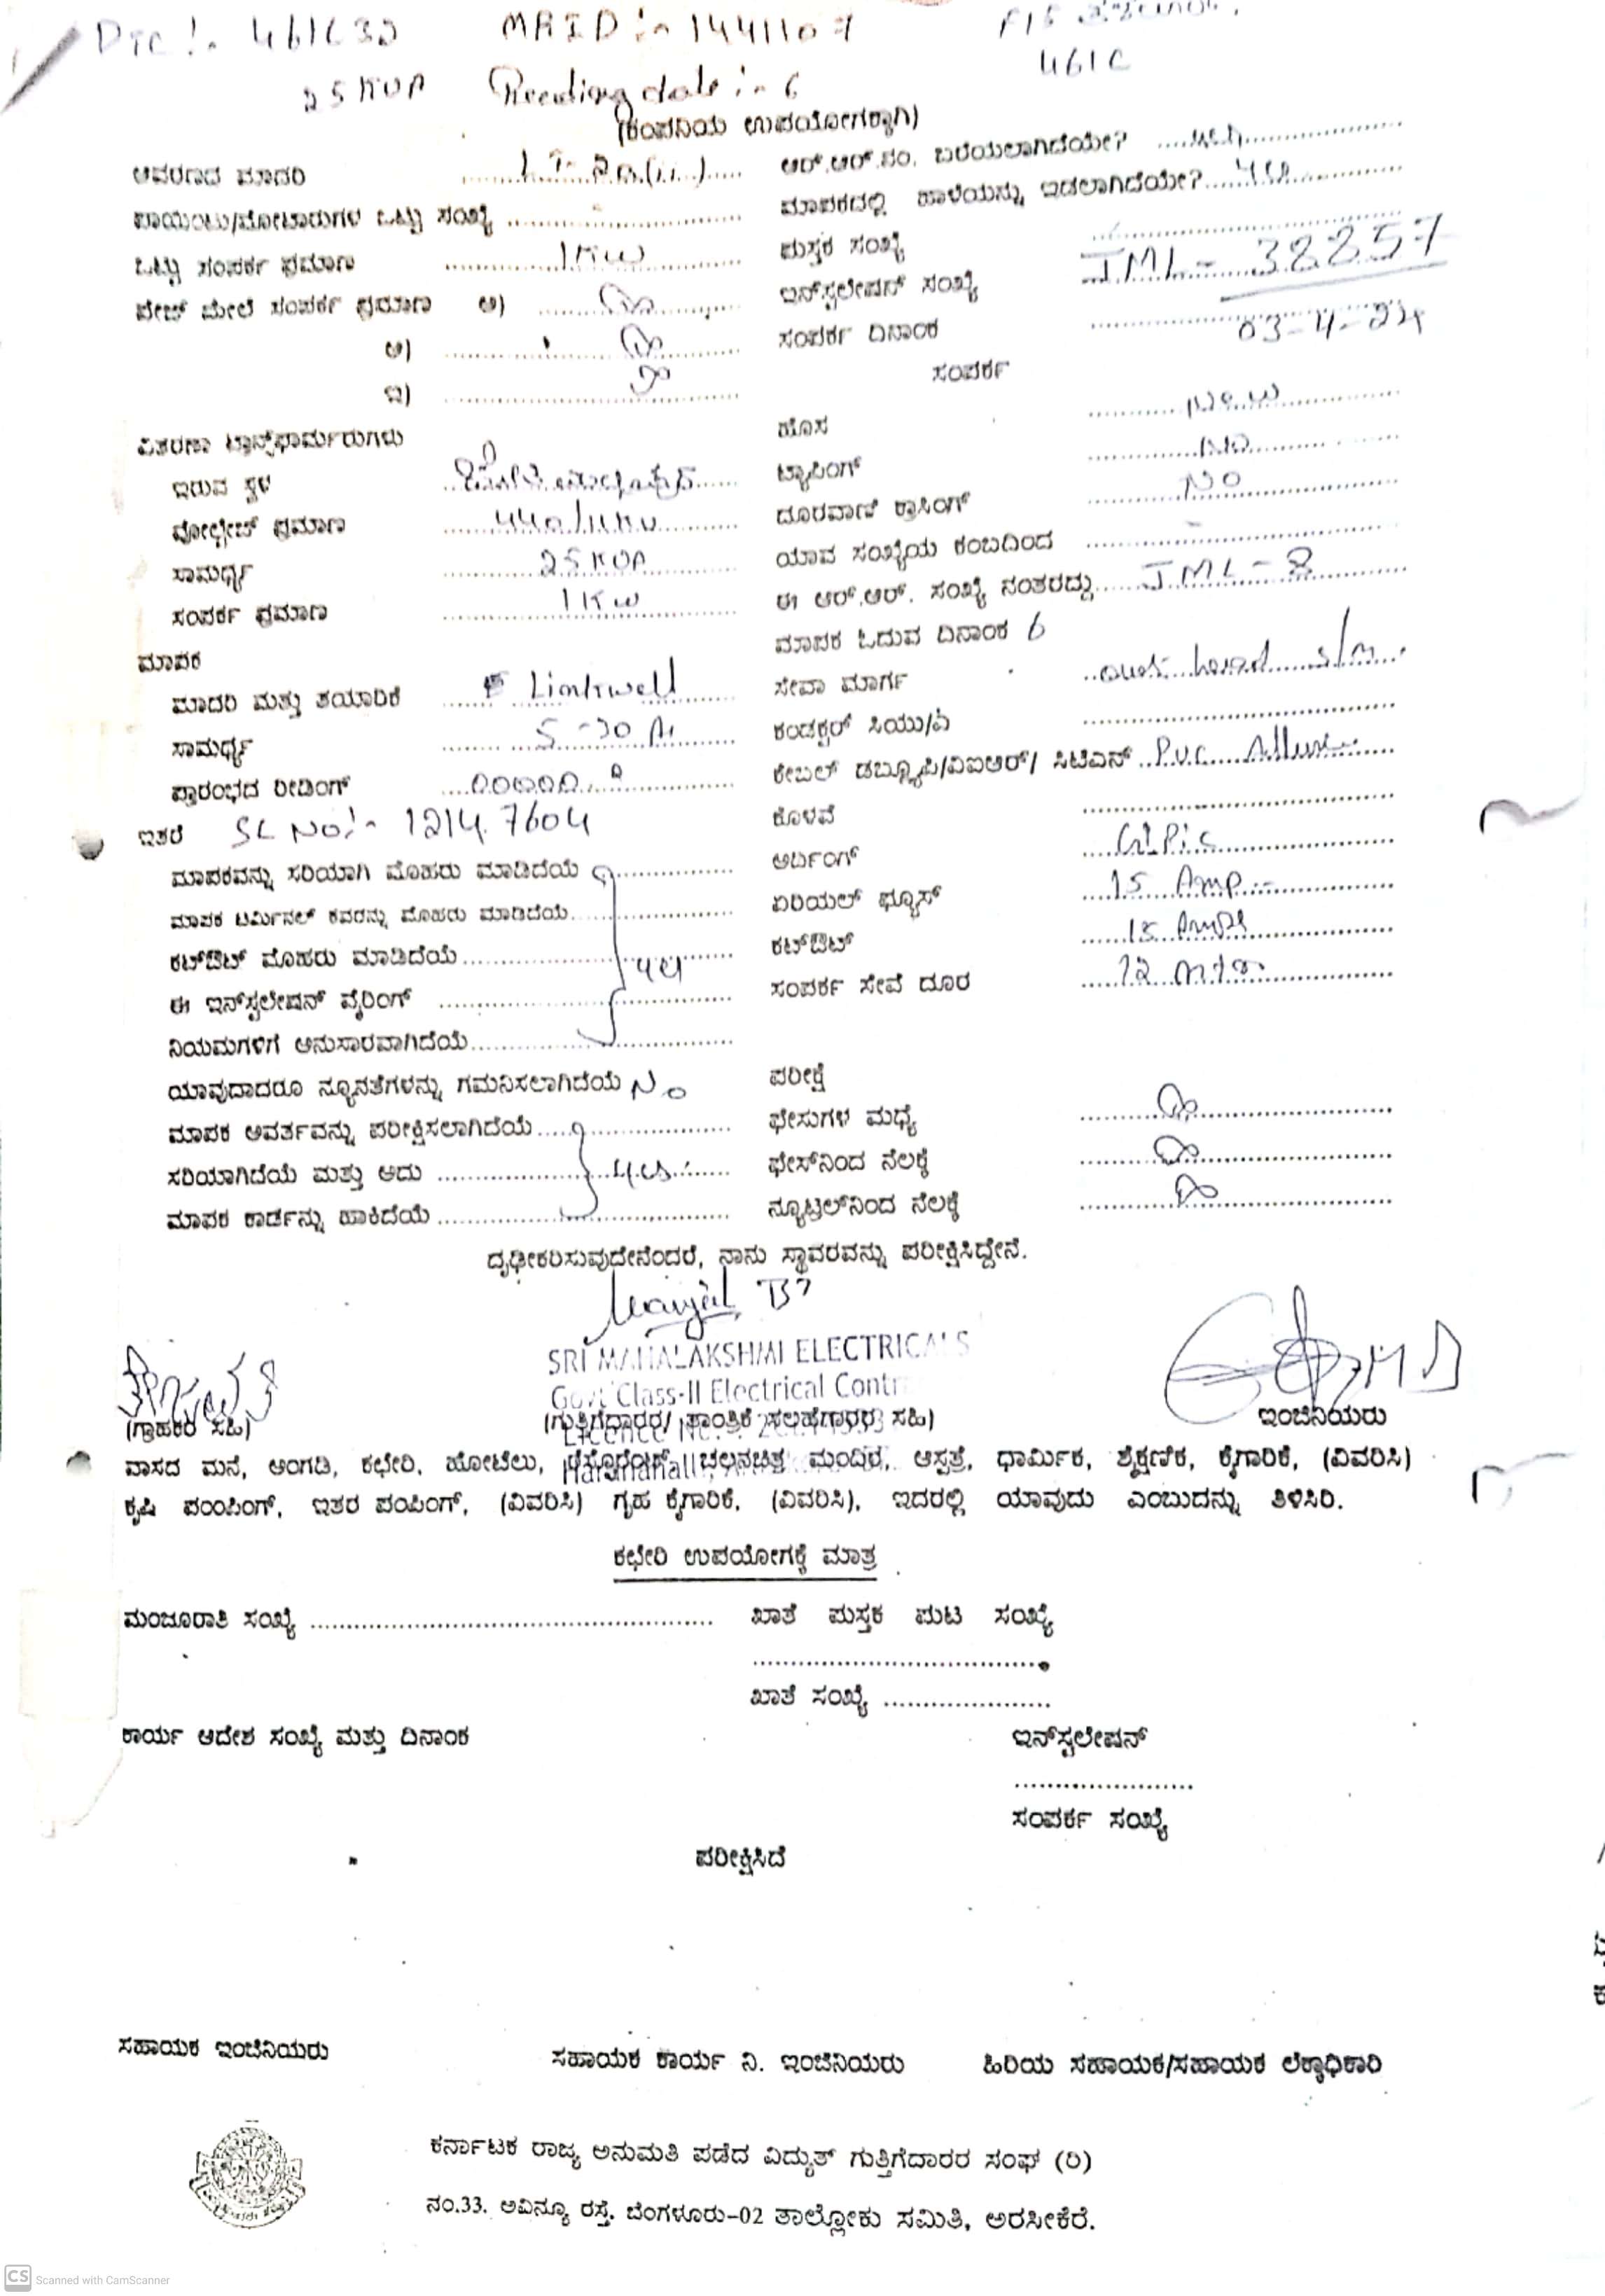 DTC:- 461C32 MRID:- 1441107
461C
25 KVA Reading date:- 6
(ಕಂಪನಿಯ ಉಪಯೋಗಕ್ಕಾಗಿ)
ಆವರಣದ ಮಾದರಿ ..........
ಆರ್.ಆರ್.ನಂ. ಬರೆಯಲಾಗಿದೆಯೇ? ..........
ಪಾಯಿಂಟು/ಮೋಟಾರುಗಳ ಒಟ್ಟು ಸಂಖ್ಯೆ ..........
ಮಾಪಕದಲ್ಲಿ ಹಾಳೆಯನ್ನು ಇಡಲಾಗಿದೆಯೇ? ..........
ಒಟ್ಟು ಸಂಪರ್ಕ ಪ್ರಮಾಣ 1 KW
ಪುಸ್ತಕ ಸಂಖ್ಯೆ
ಫೇಜ್ ಮೇಲೆ ಸಂಪರ್ಕ ಪ್ರಮಾಣ ಅ)
ಇನ್‌ಸ್ಟಲೇಷನ್ ಸಂಖ್ಯೆ JML- 38857
ಆ)
ಸಂಪರ್ಕ ದಿನಾಂಕ 03-4-24
ಇ)
ಸಂಪರ್ಕ
ವಿತರಣಾ ಟ್ರಾನ್ಸ್‌ಫಾರ್ಮರುಗಳು
ಹೊಸ New
ಇರುವ ಸ್ಥಳ
ಟ್ಯಾಪಿಂಗ್ No
ವೋಲ್ಟೇಜ್ ಪ್ರಮಾಣ 440/11KV
ದೂರವಾಣಿ ಕ್ರಾಸಿಂಗ್ NO
ಸಾಮರ್ಥ್ಯ 25 KVA
ಯಾವ ಸಂಖ್ಯೆಯ ಕಂಬದಿಂದ
ಸಂಪರ್ಕ ಪ್ರಮಾಣ 1 KW
ಈ ಆರ್.ಆರ್. ಸಂಖ್ಯೆ ನಂತರದ್ದು JML - 8
ಮಾಪಕ
ಮಾಪಕ ಓದುವ ದಿನಾಂಕ 6
ಮಾದರಿ ಮತ್ತು ತಯಾರಿಕೆ Linkwell
ಸೇವಾ ಮಾರ್ಗ
ಸಾಮರ್ಥ್ಯ 5 -30 A
ಕಂಡಕ್ಟರ್ ಸಿಯು/ಎ
ಪ್ರಾರಂಭದ ರೀಡಿಂಗ್ 00000.0
ಕೇಬಲ್ ಡಬ್ಲ್ಯೂಪಿ/ವಿಐಆರ್/ ಸಿಟಿಎಸ್ P.v.c
ಇತರೆ SL No:- 12147604
ಕೊಳವೆ
ಮಾಪಕವನ್ನು ಸರಿಯಾಗಿ ಮೊಹರು ಮಾಡಿದೆಯೆ
ಅರ್ದಿಂಗ್
ಮಾಪಕ ಟರ್ಮಿನಲ್ ಕವರನ್ನು ಮೊಹರು ಮಾಡಿದೆಯೆ
ಏರಿಯಲ್ ಫ್ಯೂಸ್ 15 Amp
ಕಟ್‌ಔಟ್ ಮೊಹರು ಮಾಡಿದೆಯೆ
ಕಟ್‌ಔಟ್ 15 Amps
ಈ ಇನ್‌ಸ್ಟಲೇಷನ್ ವೈರಿಂಗ್
ಸಂಪರ್ಕ ಸೇವೆ ದೂರ
ನಿಯಮಗಳಿಗೆ ಅನುಸಾರವಾಗಿದೆಯೆ
ಯಾವುದಾದರೂ ನ್ಯೂನತೆಗಳನ್ನು ಗಮನಿಸಲಾಗಿದೆಯೆ No
ಪರೀಕ್ಷೆ
ಮಾಪಕ ಆವರ್ತವನ್ನು ಪರೀಕ್ಷಿಸಲಾಗಿದೆಯೆ
ಫೇಸುಗಳ ಮಧ್ಯೆ
ಸರಿಯಾಗಿದೆಯೆ ಮತ್ತು ಅದು
ಫೇಸ್‌ನಿಂದ ನೆಲಕ್ಕೆ
ಮಾಪಕ ಕಾರ್ಡನ್ನು ಹಾಕಿದೆಯೆ
ನ್ಯೂಟ್ರಲ್‌ನಿಂದ ನೆಲಕ್ಕೆ
ದೃಢೀಕರಿಸುವುದೇನೆಂದರೆ, ನಾನು ಸ್ಥಾವರವನ್ನು ಪರೀಕ್ಷಿಸಿದ್ದೇನೆ.
SRI MAHALAKSHMI ELECTRICALS
Govt Class-II Electrical Contr
(ಗ್ರಾಹಕರ ಸಹಿ) (ಗುತ್ತಿಗೆದಾರರ/ ತಾಂತ್ರಿಕ ಸಲಹೆಗಾರರ ಸಹಿ) ಇಂಜಿನಿಯರು
ವಾಸದ ಮನೆ, ಅಂಗಡಿ, ಕಛೇರಿ, ಹೋಟೆಲು, ರೆಸ್ಟೊರೆಂಟ್ ಚಲನಚಿತ್ರ ಮಂದಿರ, ಆಸ್ಪತ್ರೆ, ಧಾರ್ಮಿಕ, ಶೈಕ್ಷಣಿಕ, ಕೈಗಾರಿಕೆ, (ವಿವರಿಸಿ)
ಕೃಷಿ ಪಂಪಿಂಗ್, ಇತರ ಪಂಪಿಂಗ್, (ವಿವರಿಸಿ) ಗೃಹ ಕೈಗಾರಿಕೆ, (ವಿವರಿಸಿ), ಇದರಲ್ಲಿ ಯಾವುದು ಎಂಬುದನ್ನು ತಿಳಿಸಿರಿ.
ಕಛೇರಿ ಉಪಯೋಗಕ್ಕೆ ಮಾತ್ರ
ಮಂಜೂರಾತಿ ಸಂಖ್ಯೆ .......... ಖಾತೆ ಪುಸ್ತಕ ಪುಟ ಸಂಖ್ಯೆ
ಖಾತೆ ಸಂಖ್ಯೆ ..........
ಕಾರ್ಯ ಆದೇಶ ಸಂಖ್ಯೆ ಮತ್ತು ದಿನಾಂಕ ಇನ್‌ಸ್ಟಲೇಷನ್
ಸಂಪರ್ಕ ಸಂಖ್ಯೆ
ಪರೀಕ್ಷಿಸಿದೆ
ಸಹಾಯಕ ಇಂಜಿನಿಯರು ಸಹಾಯಕ ಕಾರ್ಯ ನಿ. ಇಂಜಿನಿಯರು ಹಿರಿಯ ಸಹಾಯಕ/ಸಹಾಯಕ ಲೆಕ್ಕಾಧಿಕಾರಿ
ಕರ್ನಾಟಕ ರಾಜ್ಯ ಅನುಮತಿ ಪಡೆದ ವಿದ್ಯುತ್ ಗುತ್ತಿಗೆದಾರರ ಸಂಘ (ರಿ)
ನಂ.33. ಅವಿನ್ಯೂ ರಸ್ತೆ, ಬೆಂಗಳೂರು-02 ತಾಲ್ಲೋಕು ಸಮಿತಿ, ಅರಸೀಕೆರೆ.
CS Scanned with CamScanner